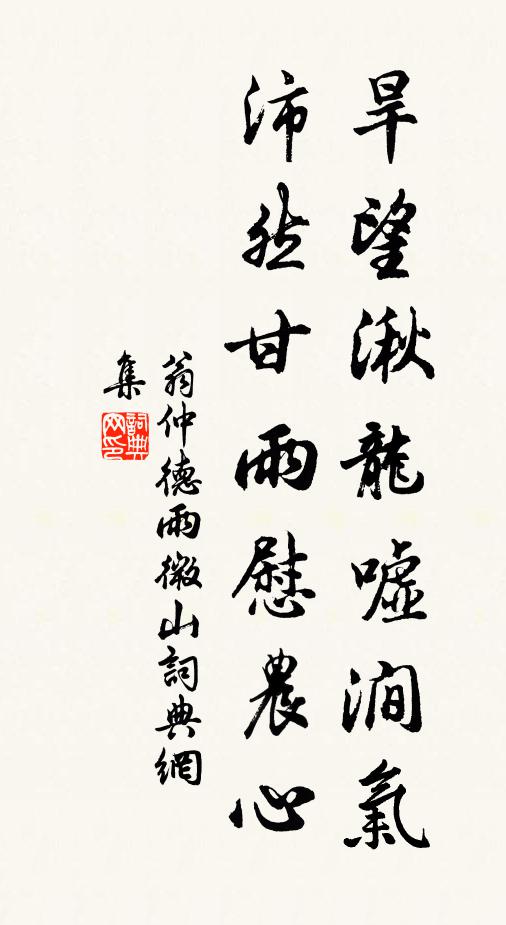 旱望湫龍噓澗氣
沛然甘雨慰農心
翁仲德雨微山詞典網
集
詞典
网印